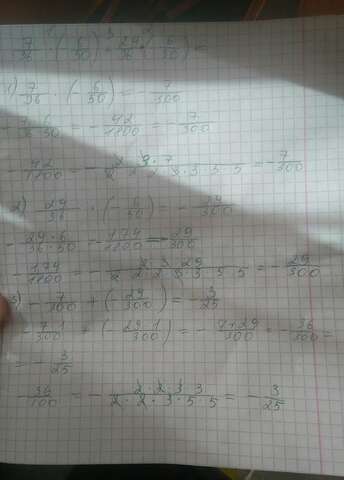 7/36 · (- 6/50) + 29/36 · (- 6/50) =
1) 7/36 · (- 6/50) = - 7/300
- 7·6/36·50 = - 42/1800 = - 7/300
- 42/1800 = - 2·3·7/2·2·2·3·3·5·5 = - 7/300
2) 29/36 · (- 6/50) = - 29/300
- 29·6/36·50 = - 174/1800 = - 29/300
- 174/1800 = - 2·3·29/2·2·2·3·3·5·5 = - 29/300
3) - 7/300 + (- 29/300) = - 3/25
- 7·1/300 + (- 29·1/300) = - 7+29/300 = - 36/300 =
= - 3/25
- 36/100 = - 2·2·3·3/2·2·3·5·5 = - 3/25